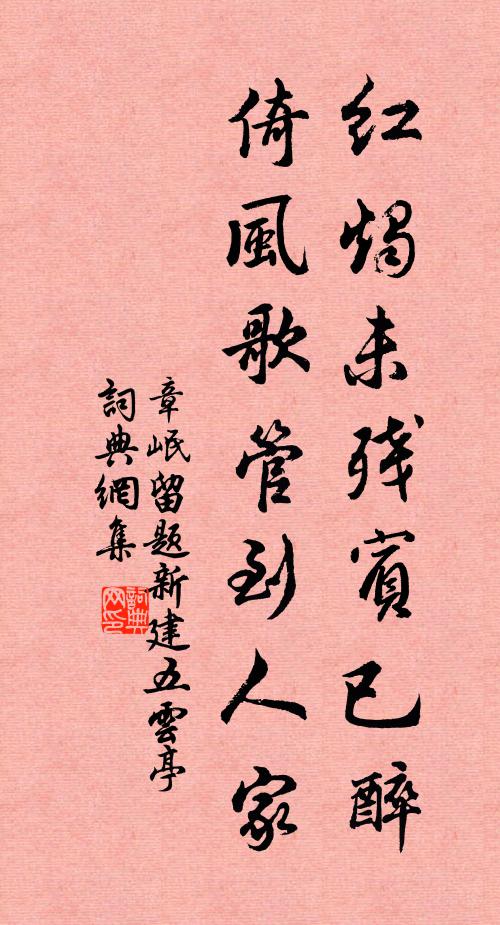 紅燭未殘賓已醉
倚風歌管到人家
章岷留題新建五雲亭
詞典網集
詞典网印